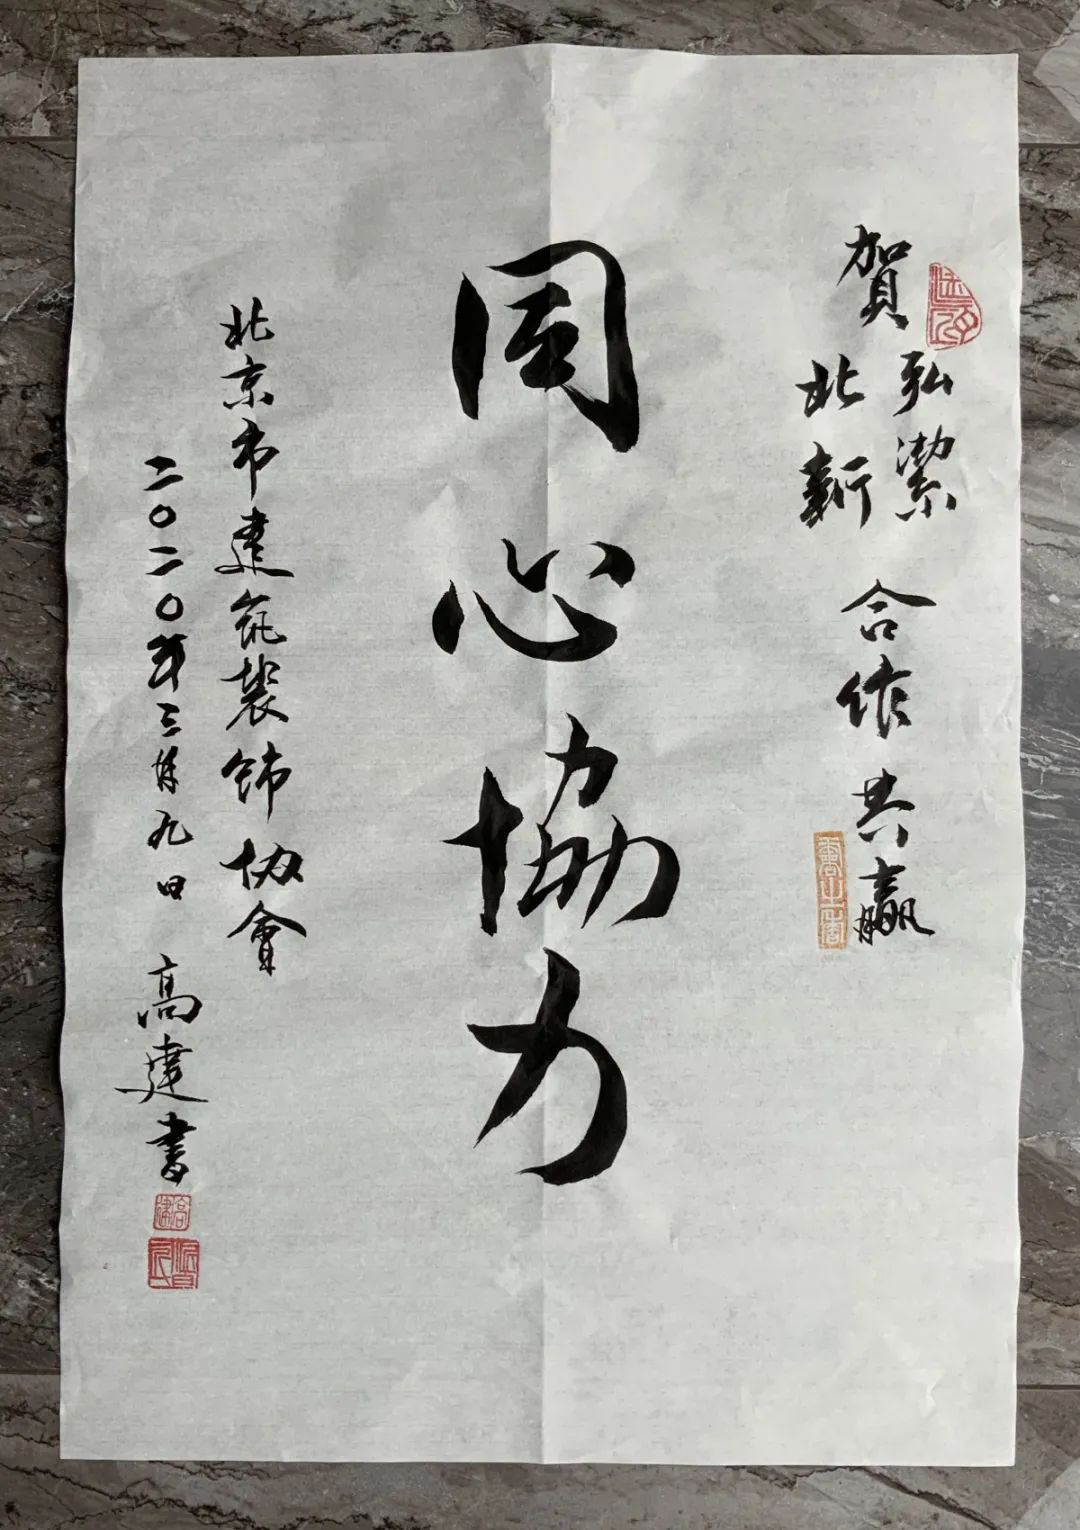 賀
弘潔
北新
合作共赢
同心協力
北京市建筑裝饰协會
二〇二〇年三月九日 高建書
高建